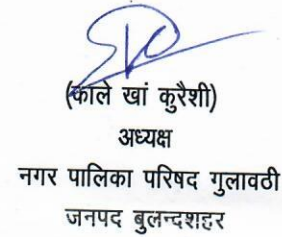 (काले खां कुरैशी)
अध्यक्ष
नगर पालिका परिषद गुलावठी
जनपद बुलन्दशहर